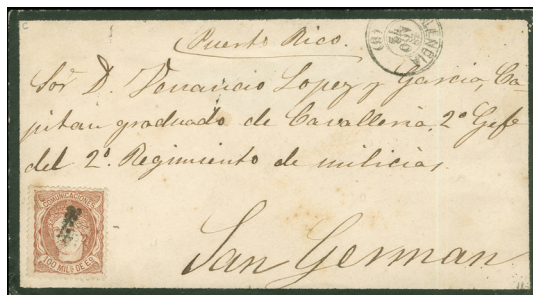 Puerto Rico.
Sor. D. Venancio Lopez y Garcia, Ca-
pitan graduado de Cavalleria, 2º Gefe
del 2º Regimiento de milicias
San German
COMUNICACIONES
100 MILS. DE Eº